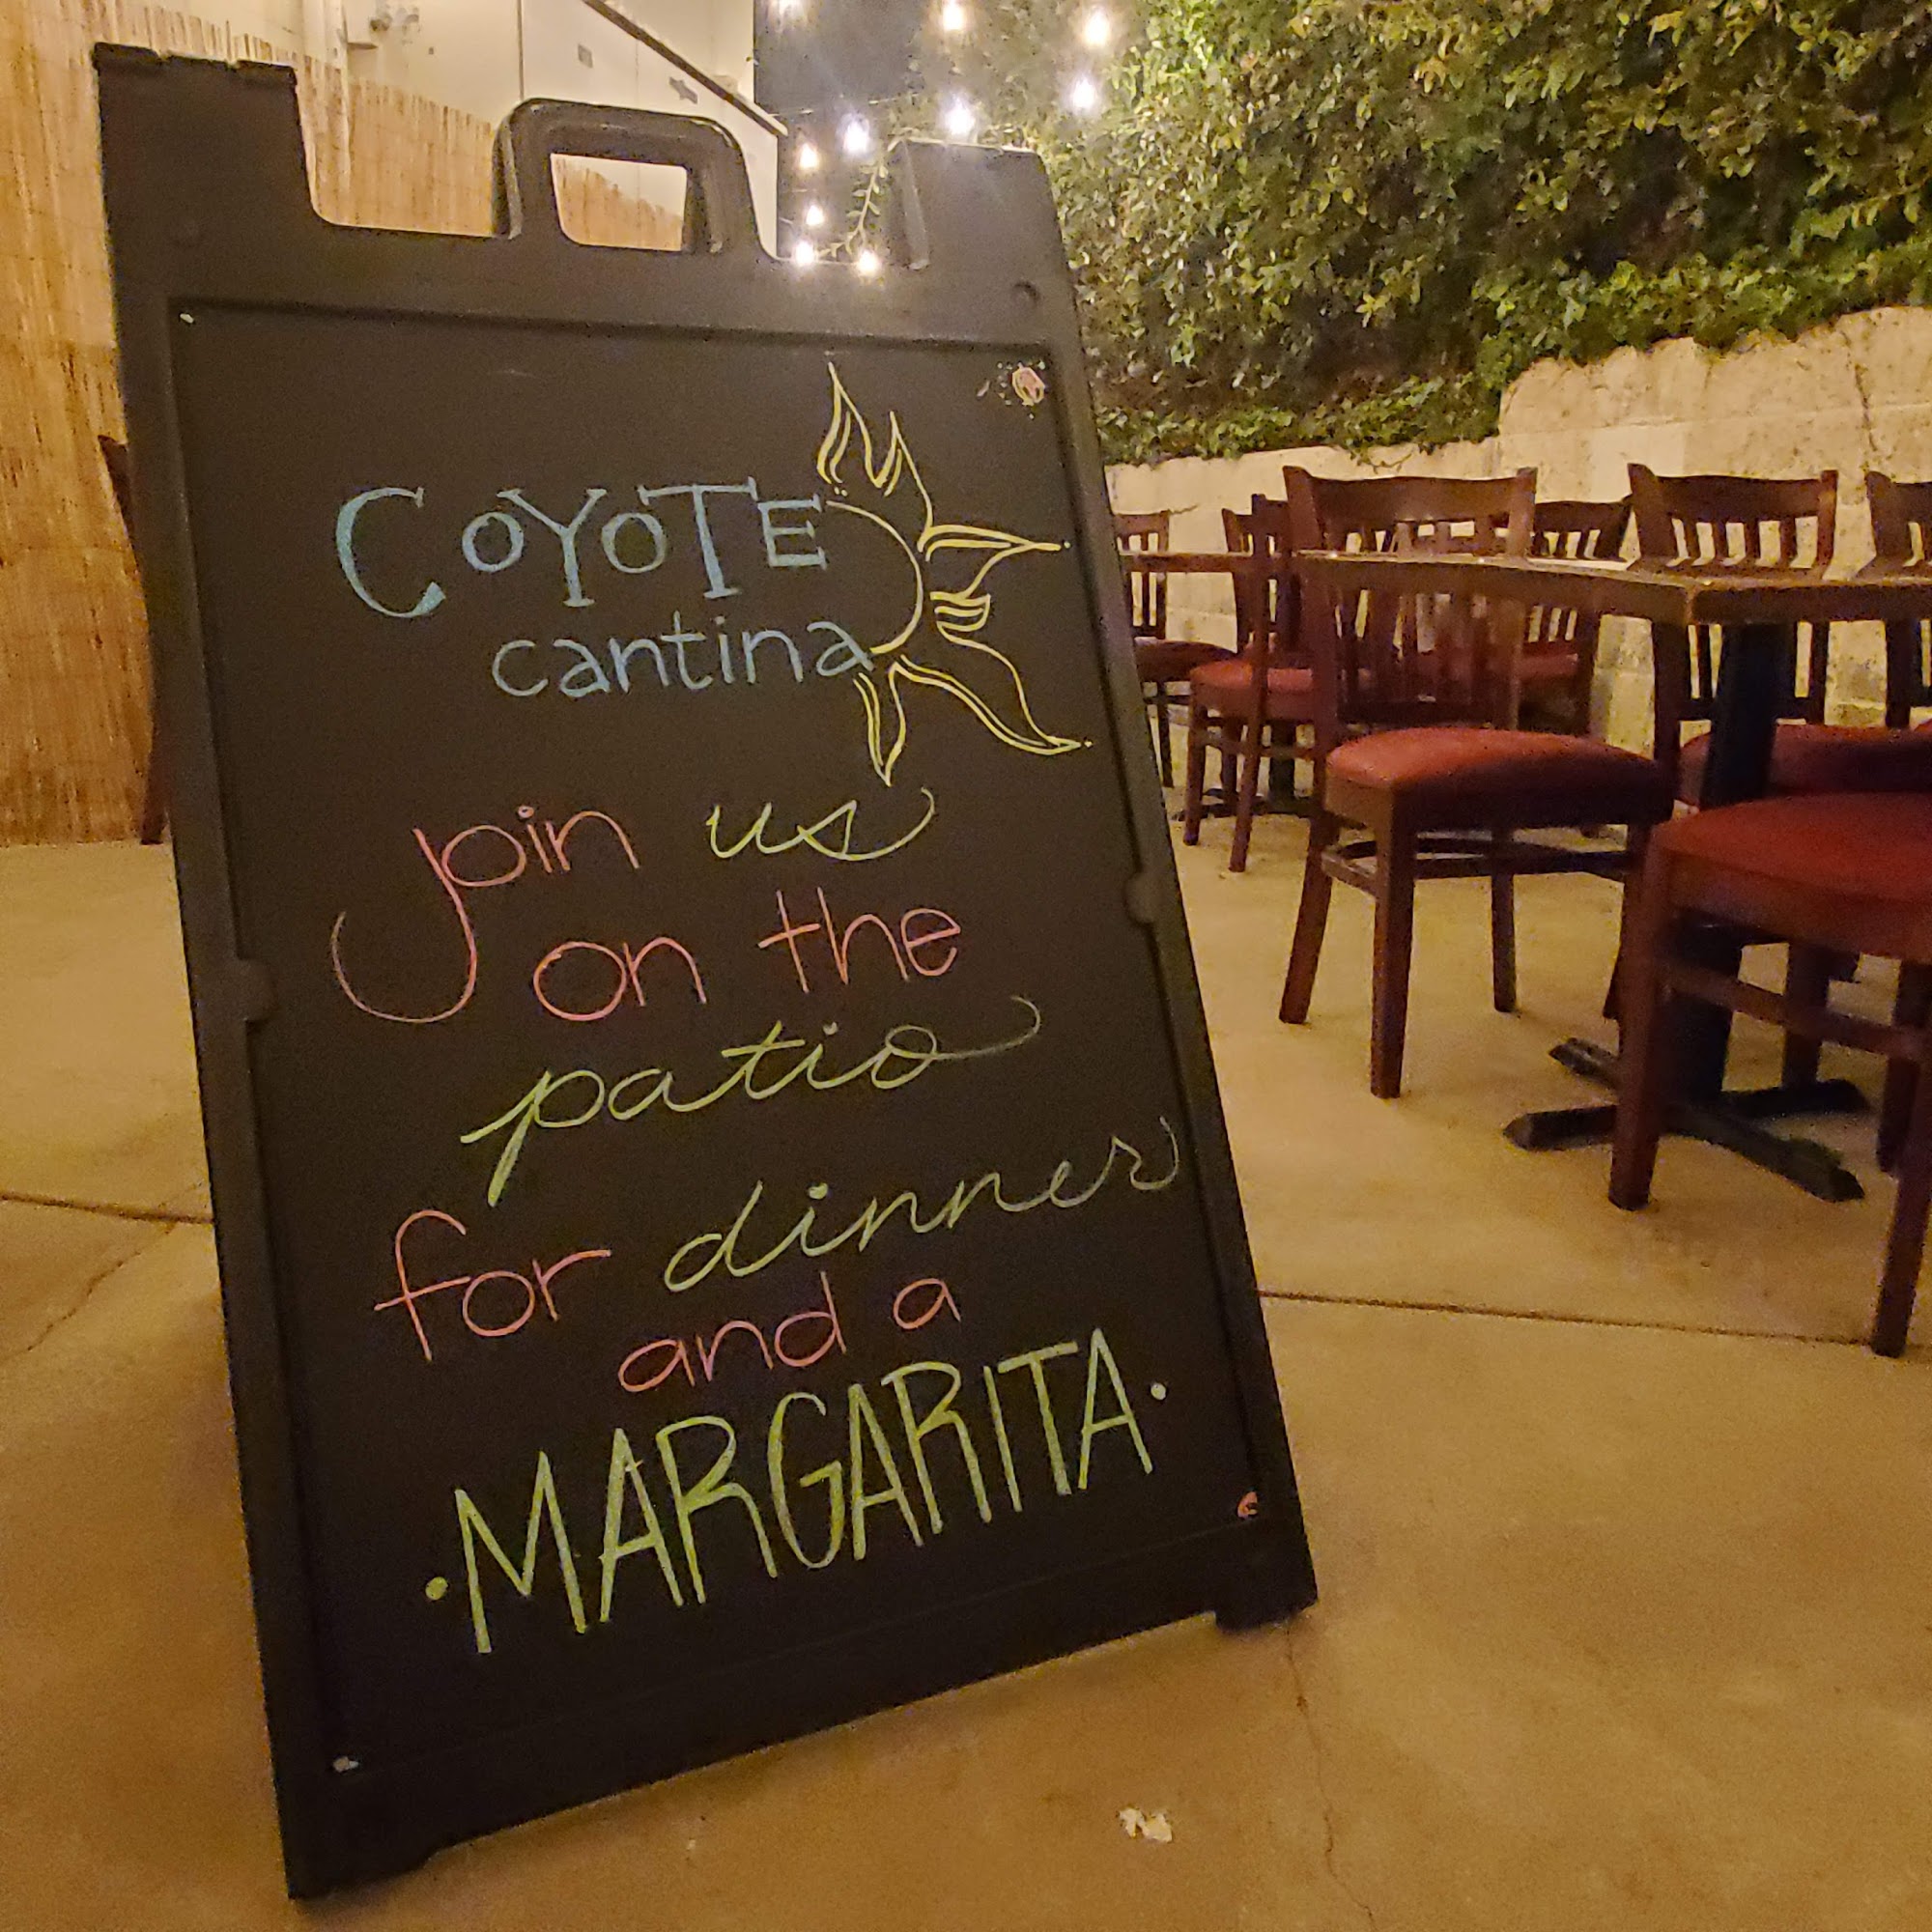 COYOTE
cantina
Join us
on the
patio
for dinner
and a
•MARGARITA•